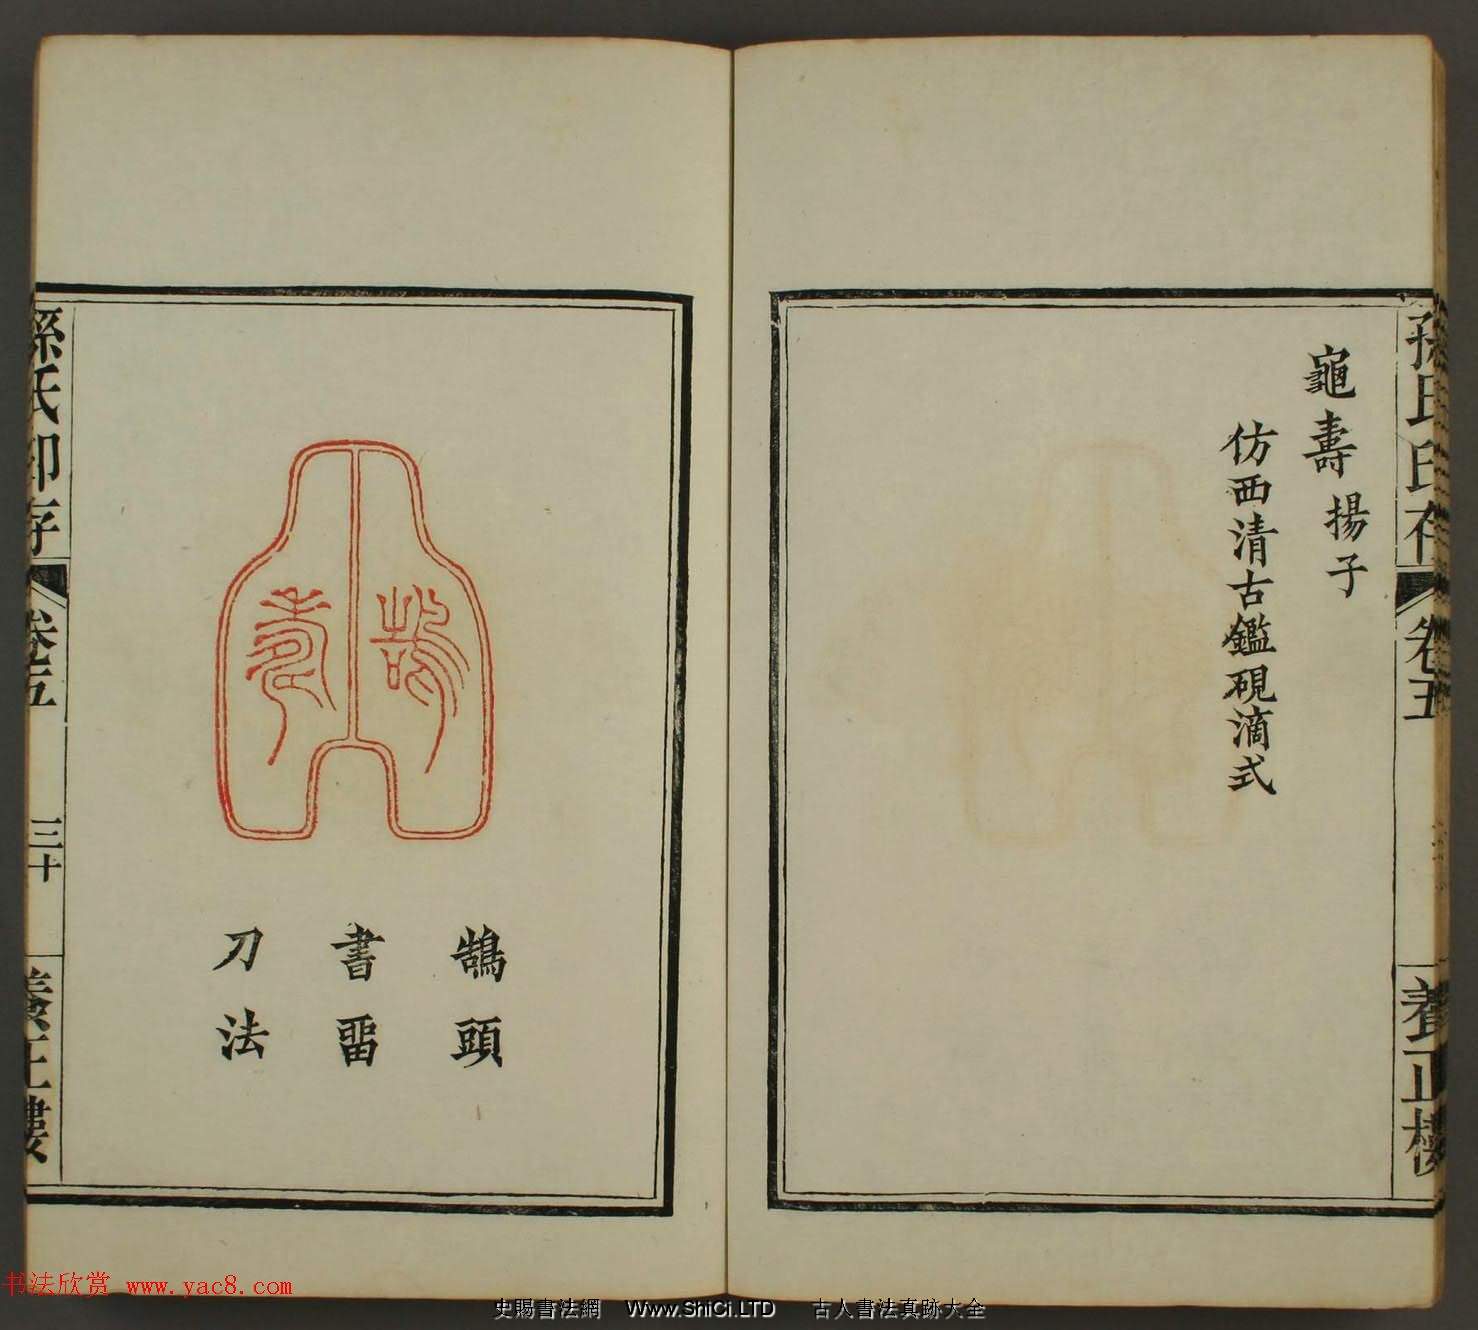 孫氏印存
卷五
養正樓
龜壽 揚子
仿西清古鑑硯滴式
鵠頭
書畱
刀法
孫氏印存
卷五
三十
養正樓
书法欣赏 www.yac8.com
史賜書法網 Www.ShiCi.LTD 古人書法真跡大全